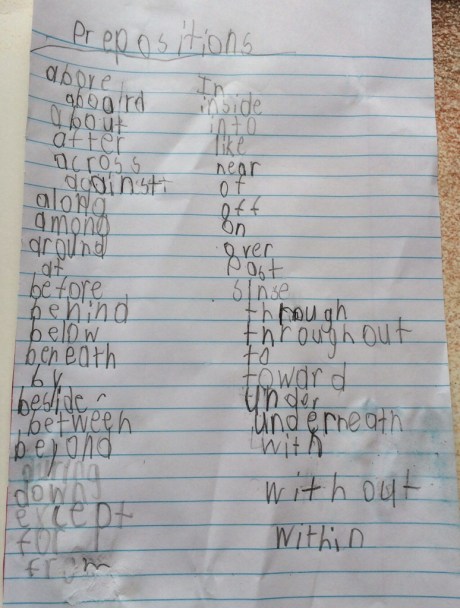 Prepositions
above
aboard
about
after
across
against
along
among
around
at
before
behind
below
beneath
by
beside
between
beyond
during
down
except
for
from
In
inside
into
like
near
of
off
on
over
Past
sinse
through
throughout
to
toward
Under
underneath
with
with out
within